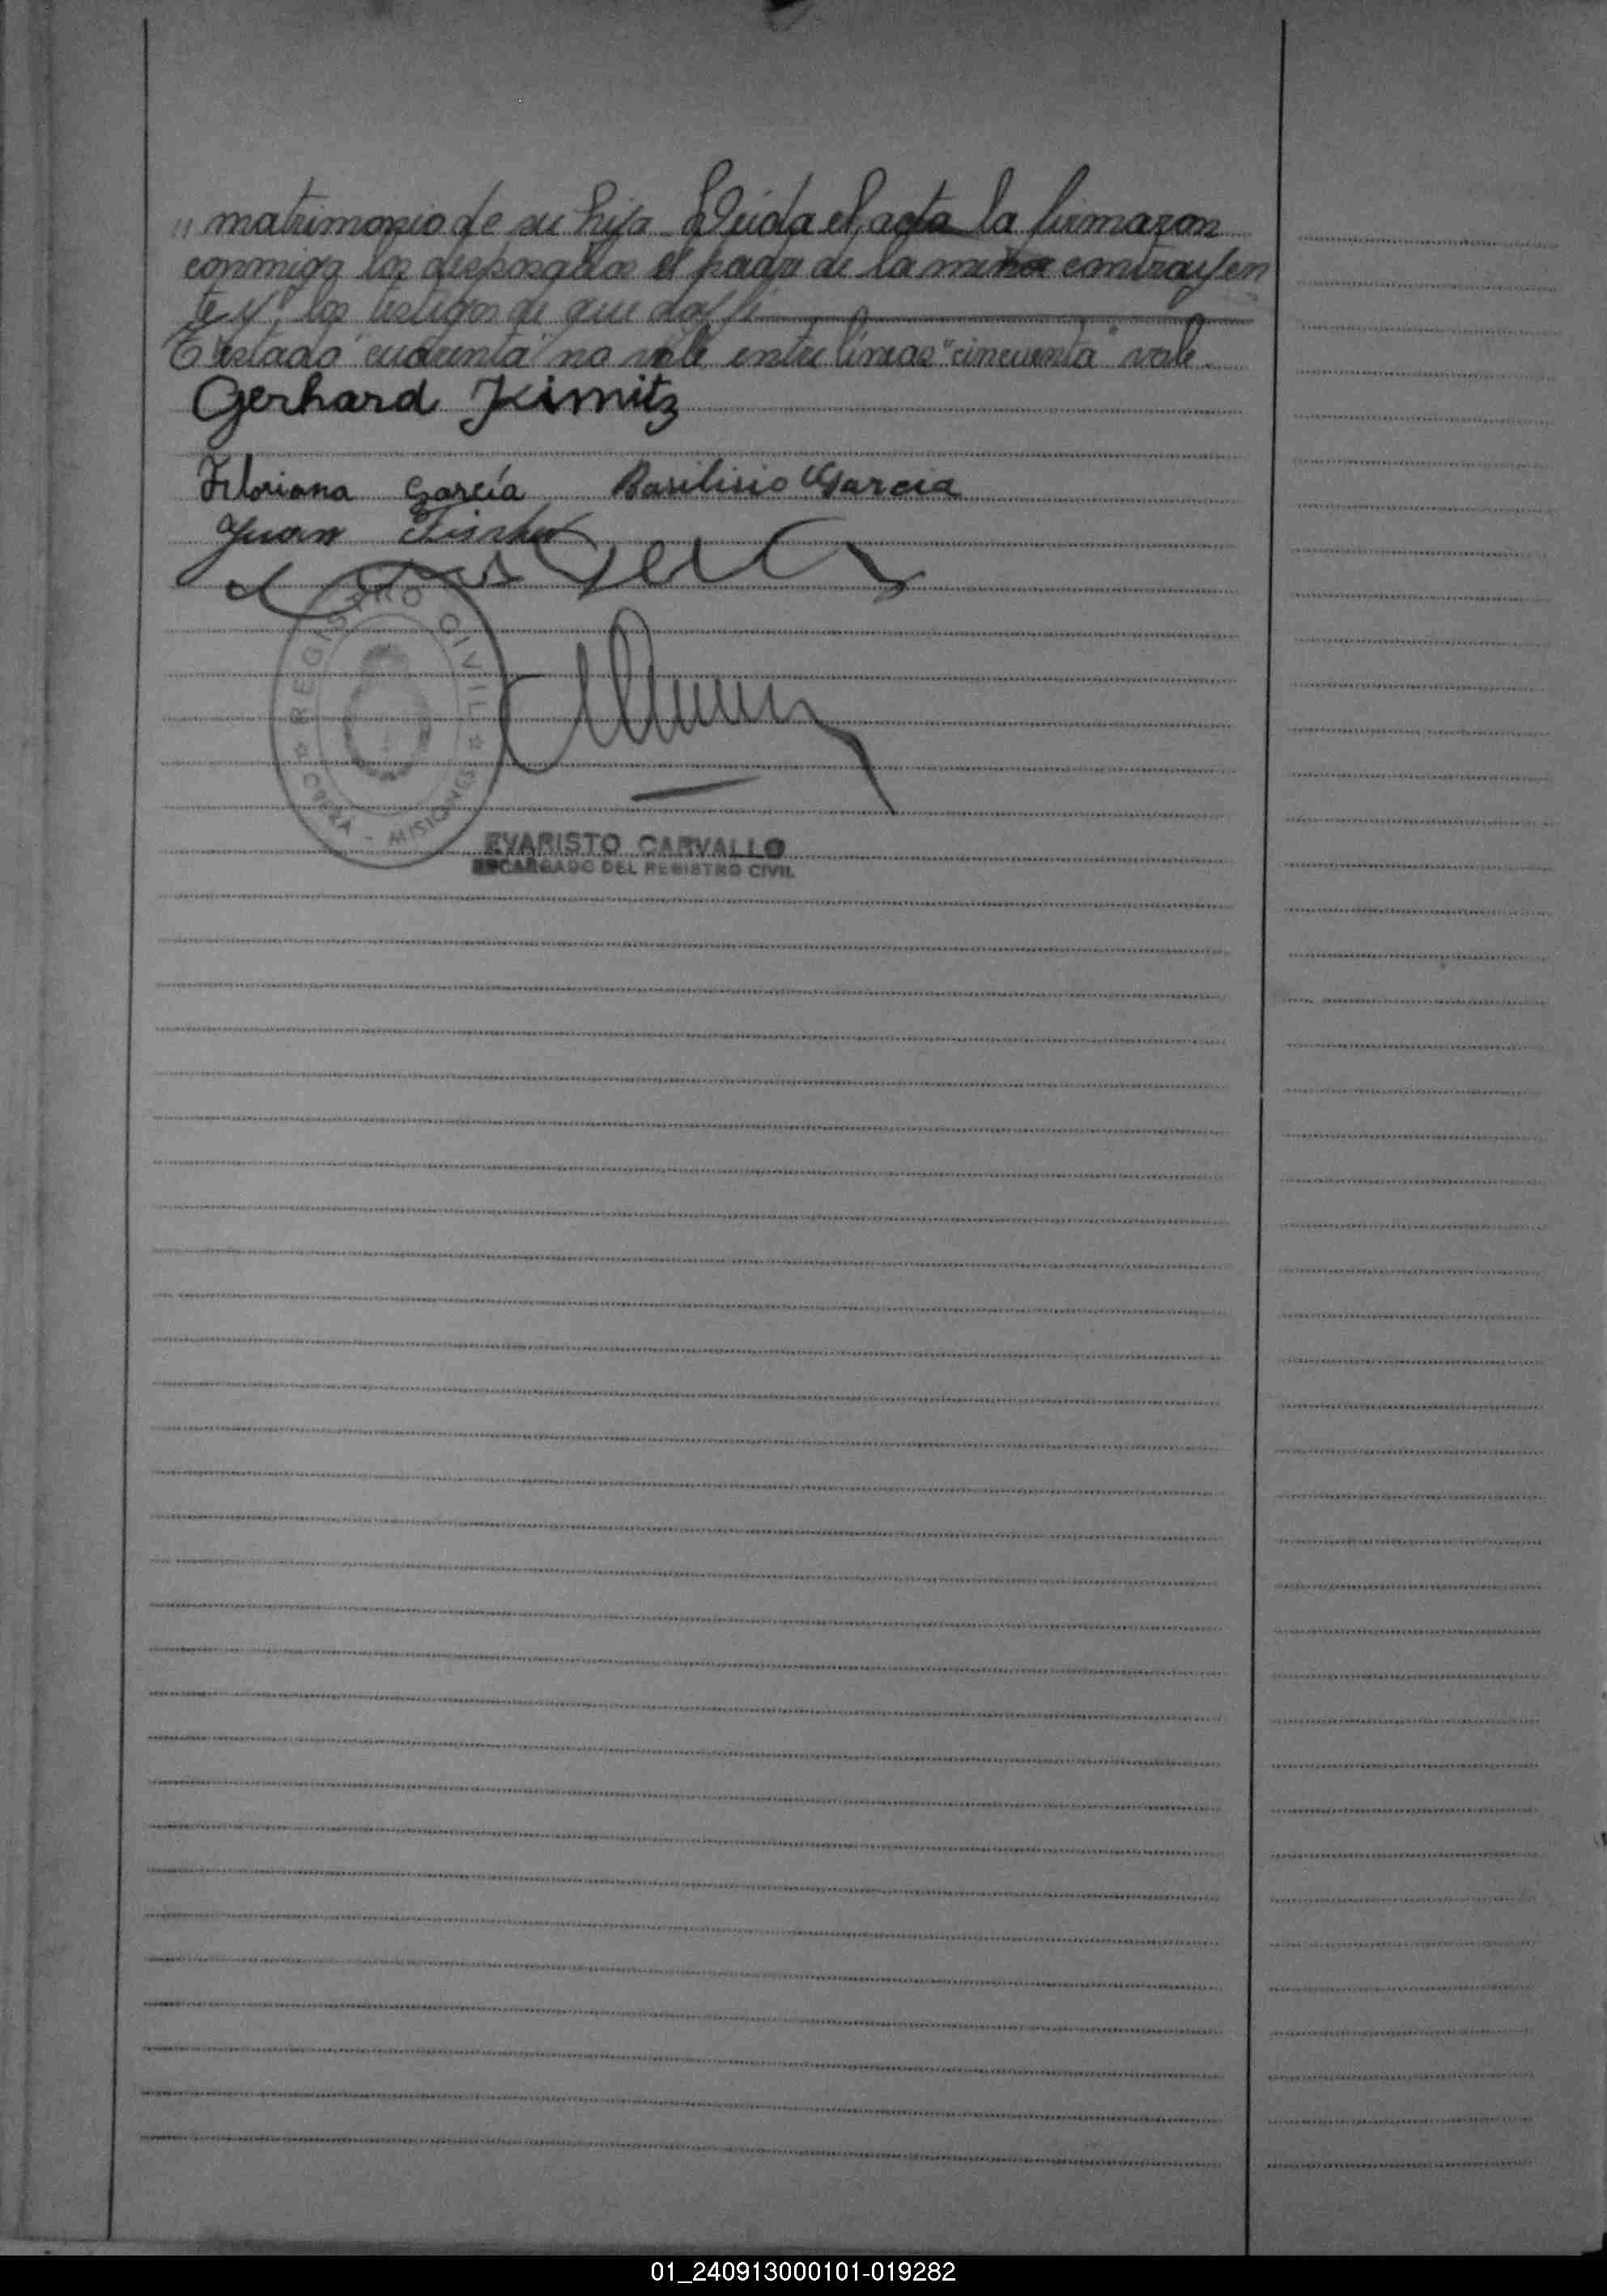 " matrimonio de su hija. Leida el acta la firmaron
conmigo los desposados el padre de la menor contrayen
te y los testigos de que doy fé
Testado "cuarenta" no vale entre líneas "cincuenta" vale.
Gerhard Kimitz
Floriana García Basilisio Garcia
Juan Fischer
REGISTRO CIVIL
OBERA - MISIONES
EVARISTO CARVALLO
ENCARGADO DEL REGISTRO CIVIL
01_240913000101-019282